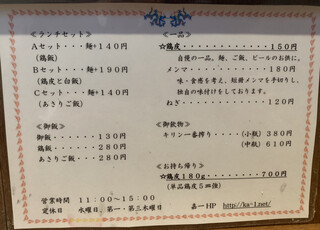 ≪ランチセット≫
Aセット・・・麺+140円
(鶏飯)
Bセット・・・麺+190円
(鶏皮と白飯)
Cセット・・・麺+140円
(あさりご飯)
≪御飯≫
御飯・・・・・・130円
鶏飯・・・・・・280円
あさりご飯・・・280円
営業時間 11:00~15:00
定休日 水曜日、第一・第三木曜日
≪一品≫
☆鶏皮・・・・・・・・・・150円
自慢の一品。麺、ご飯、ビールのお供に。
メンマ・・・・・・・・・・180円
味・食感を考え、短冊メンマを手切りし、
独自の味付けをしております。
ねぎ・・・・・・・・・・・120円
≪御飲物≫
キリン一番搾り・・・・・(小瓶)380円
(中瓶)610円
≪お持ち帰り≫
☆鶏皮180g・・・・・・・700円
(単品鶏皮5皿強)
嘉一HP http://ka-1.net/